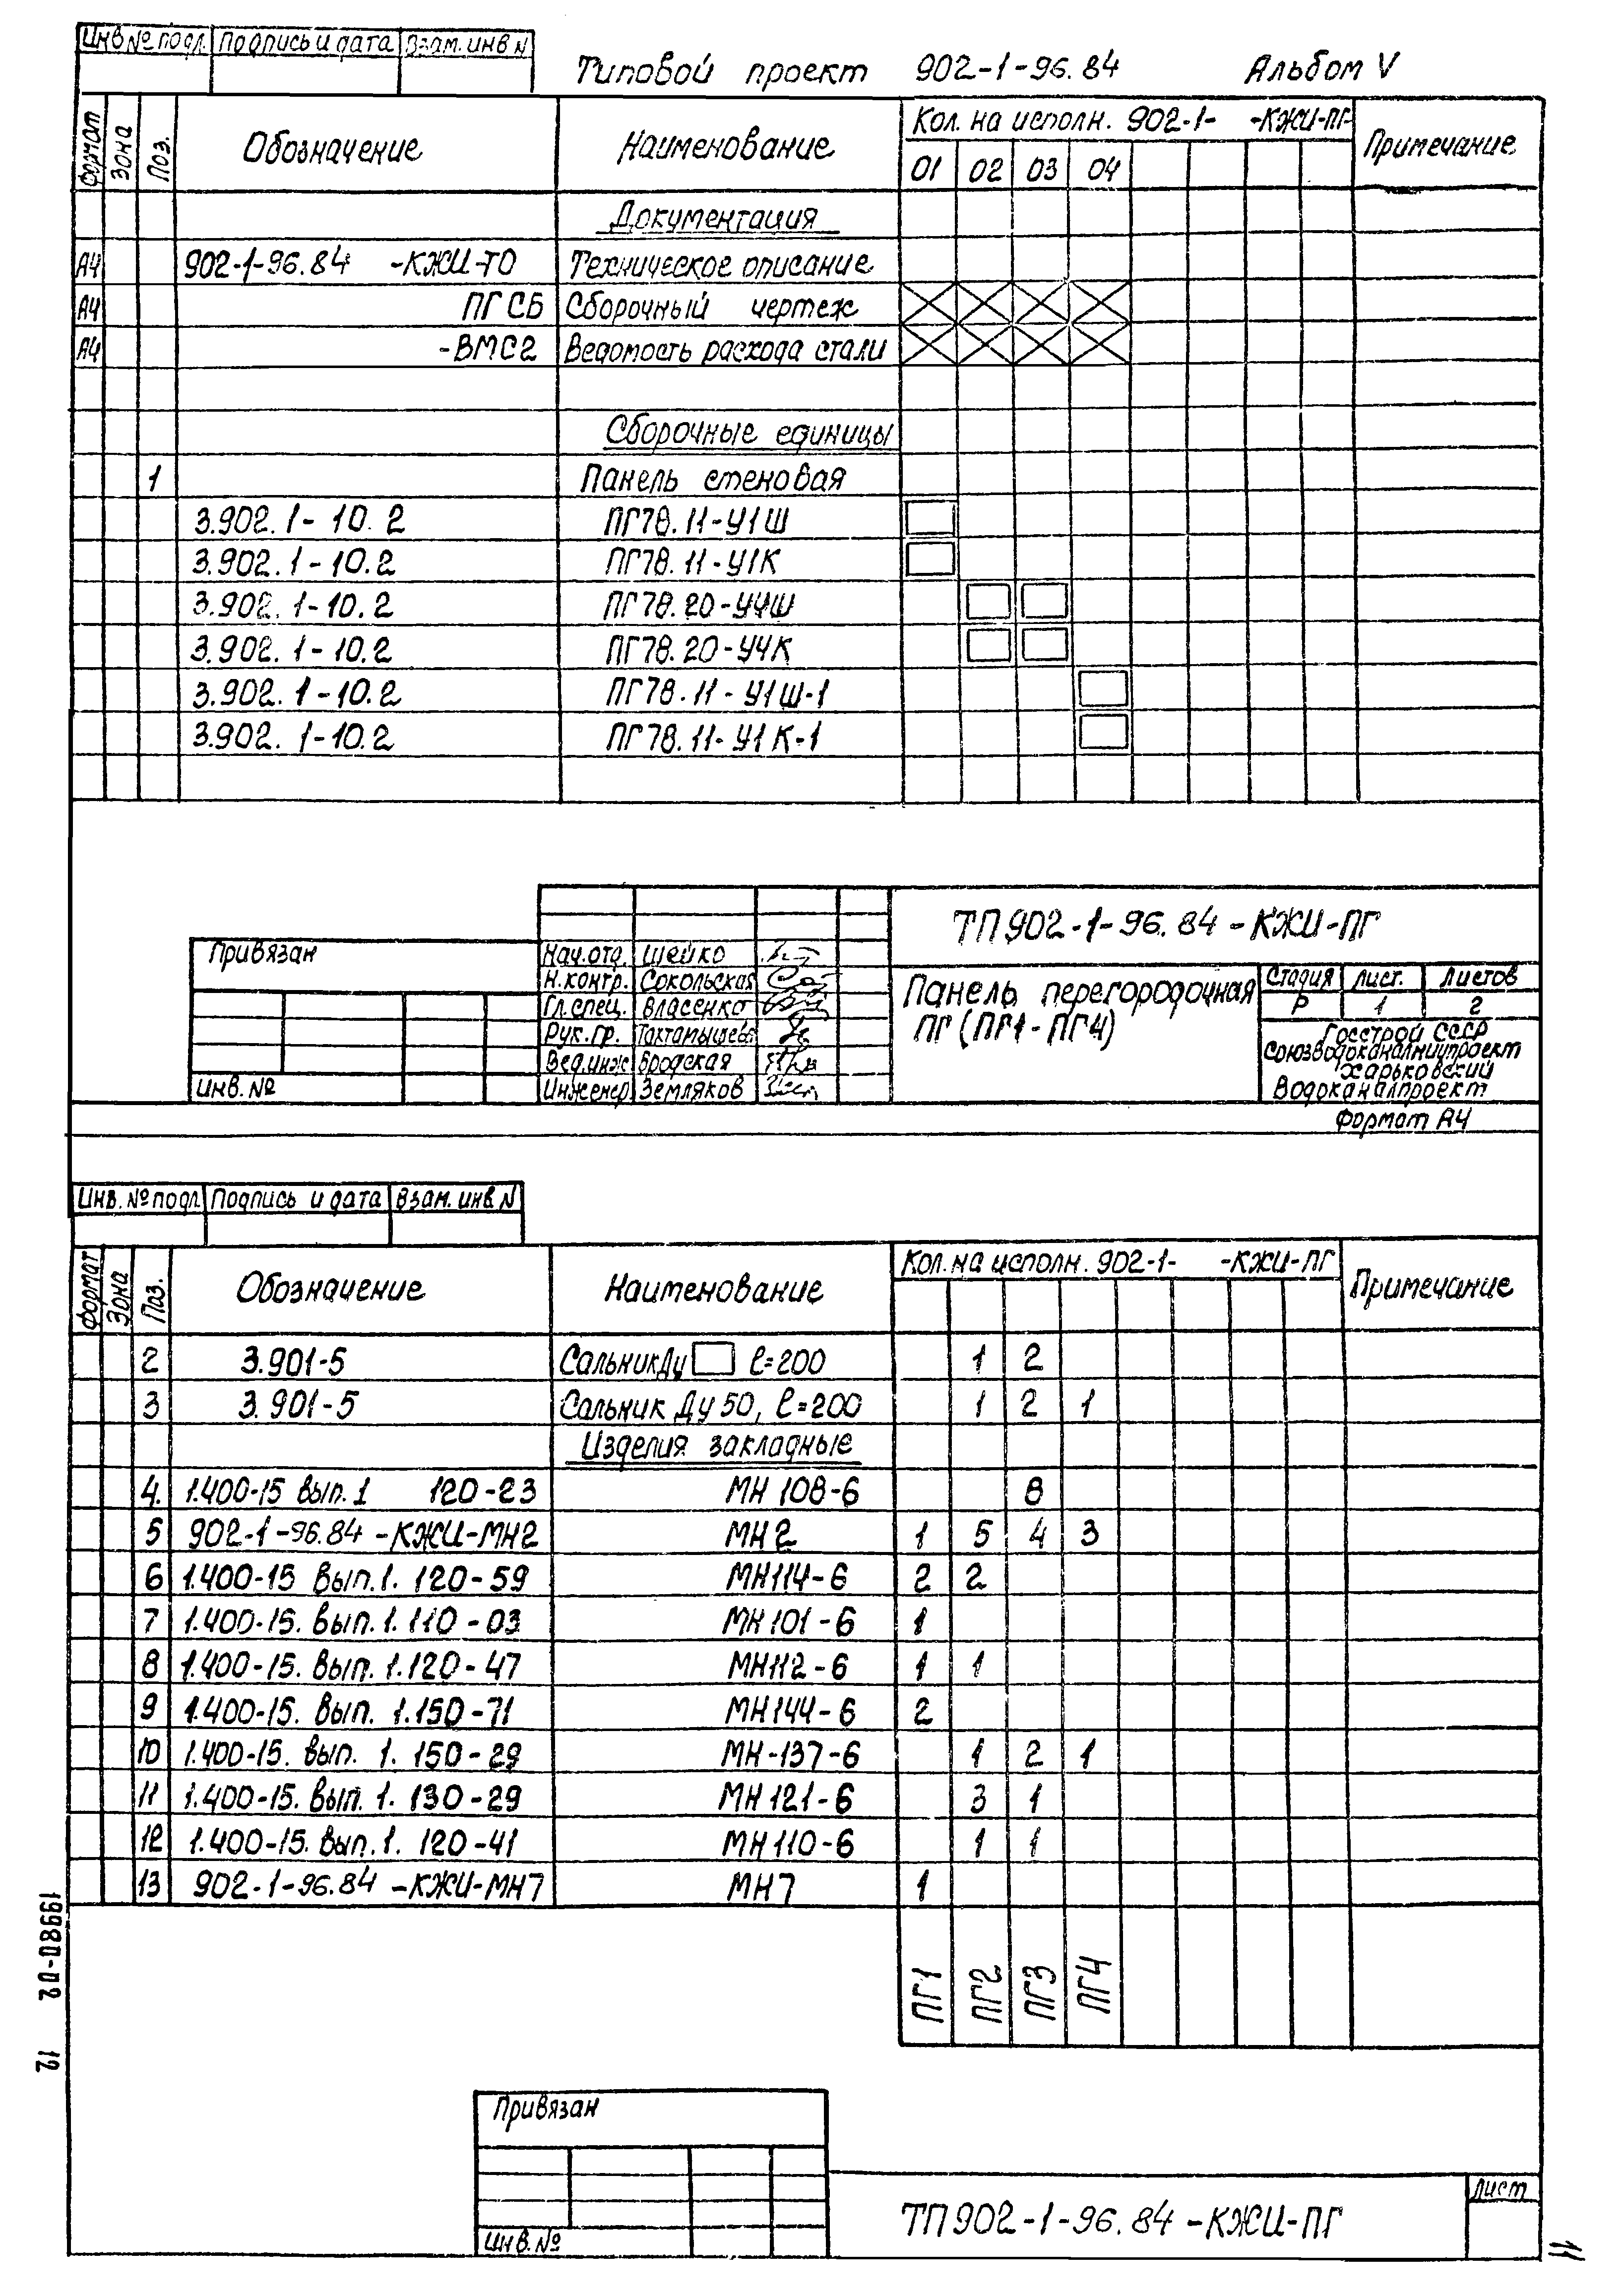 Инв № подл. Подпись и дата Взам. инв N
Типовой проект 902-1-96.84 Альбом V
Формат Зона Поз. Обозначение Наименование Кол. на исполн. 902-1- -КЖИ-ПГ- Примечание
01 02 03 04
Документация
А4 902-1-96.84 -КЖИ-ТО Техническое описание
А4 ПГ СБ Сборочный чертеж
А4 -ВМС2 Ведомость расхода стали
Сборочные единицы
1 Панель стеновая
3.902.1-10.2 ПГ78.11-У1Ш
3.902.1-10.2 ПГ78.11-У1К
3.902.1-10.2 ПГ78.20-У4Ш
3.902.1-10.2 ПГ78.20-У4К
3.902.1-10.2 ПГ78.11-У1Ш-1
3.902.1-10.2 ПГ78.11-У1К-1
ТП 902-1-96.84-КЖИ-ПГ
Привязан
Инв. №
Нач.отд. Шейко
Н.контр. Сокольская
Гл.спец. Власенко
Рук.гр. Тактамышева
Вед.инж Бродская
Инженер. Земляков
Панель перегородочная
ПГ (ПГ1-ПГ4)
Стадия Лист. Листов
Р 1 2
Госстрой СССР
Союзводоканалниипроект
Харьковский
Водоканалпроект
Формат А4
Инв. № подл. Подпись и дата Взам. инв N
Формат Зона Поз. Обозначение Наименование Кол. на исполн. 902-1- -КЖИ-ПГ Примечание
2 3.901-5 Сальник Ду ℓ=200 1 2
3 3.901-5 Сальник Ду 50, ℓ=200 1 2 1
Изделия закладные
4. 1.400-15 Вып.1 120-23 МН 108-6 8
5 902-1-96.84-КЖИ-МН2 МН2 1 5 4 3
6 1.400-15 Вып.1. 120-59 МН114-6 2 2
7 1.400-15. Вып.1. 110-03 МН101-6 1
8 1.400-15. Вып. 1.120-47 МН112-6 1 1
9 1.400-15. Вып. 1.150-71 МН144-6 2
10 1.400-15. Вып. 1. 150-29 МН-137-6 1 2 1
11 1.400-15. Вып. 1. 130-29 МН121-6 3 1
12 1.400-15. Вып.1. 120-41 МН110-6 1 1
13 902-1-96.84-КЖИ-МН7 МН7 1
ПГ1 ПГ2 ПГ3 ПГ4
19980-02 12
Привязан
Инв. №
ТП 902-1-96.84-КЖИ-ПГ
Лист
11